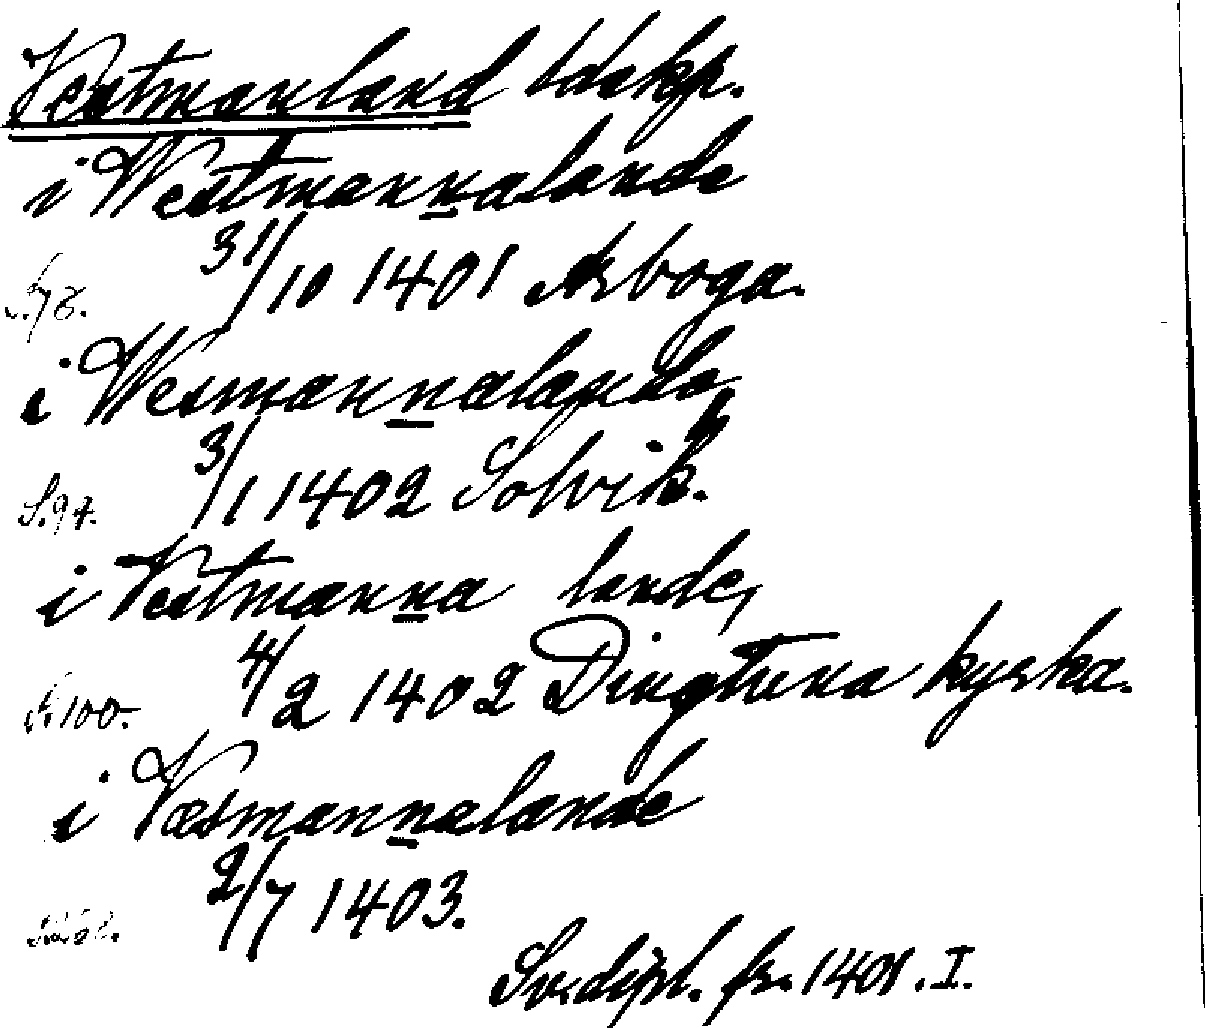 Vestmanland ldskp.
i Westmannalande
31/10 1401 Arboga.
S. 78.
i Wesmannalande,
3/1 1402 Solvik.
S. 94.
i Vestmanna lande,
4/2 1402 Dingtuna kyrka.
S. 100.
i Væsmannalande
2/7 1403.
Sv. dipl. fr. 1401. I.